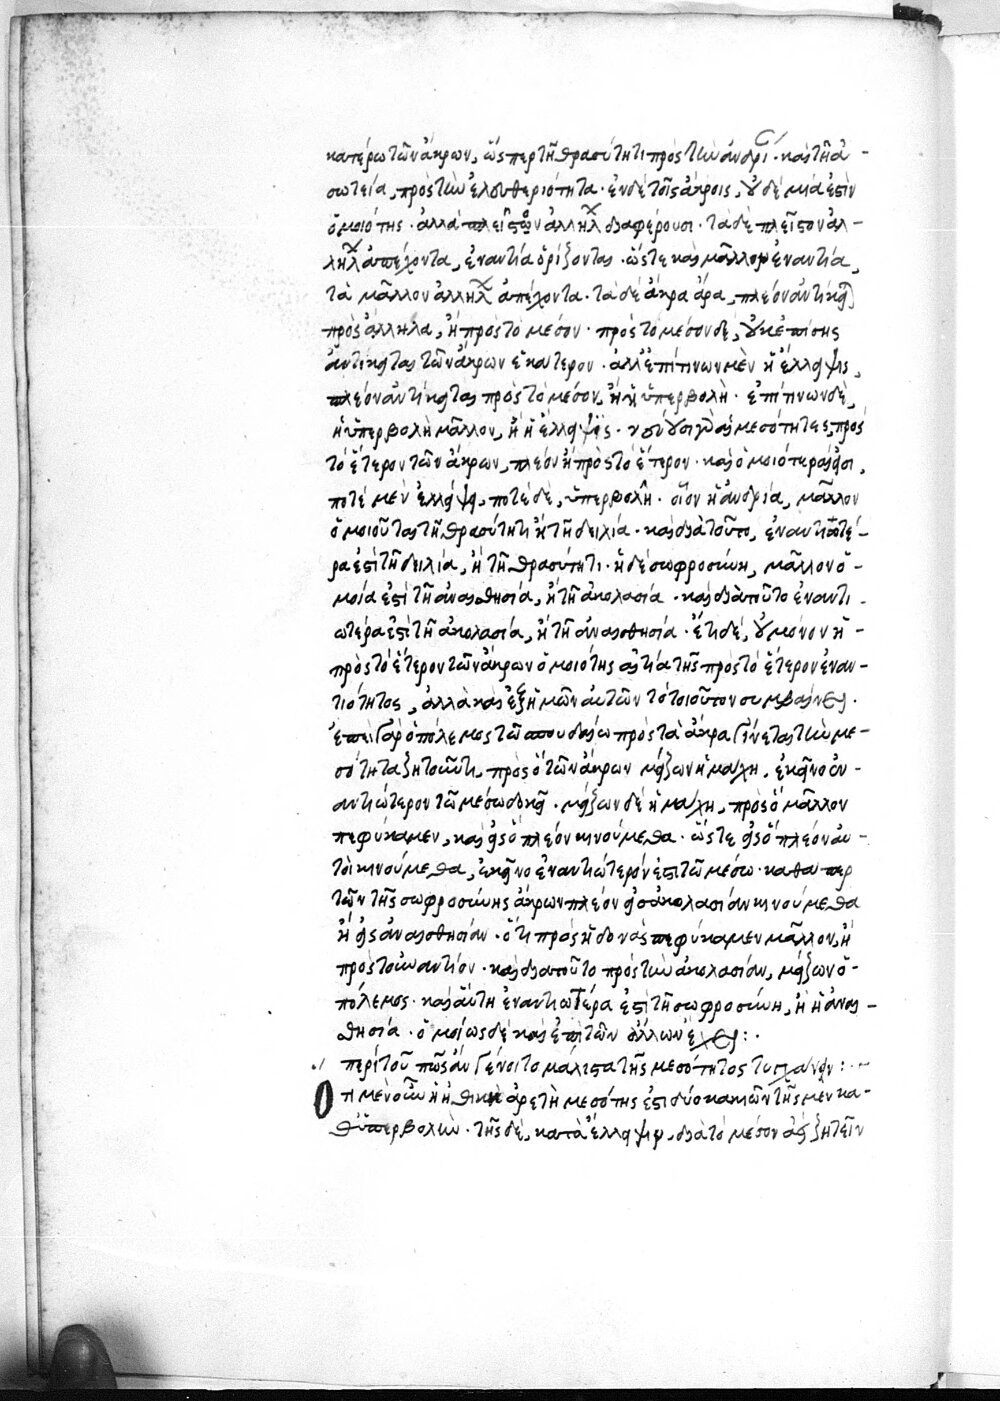 κατέρω τῶν ἄκρων, ὥσπερ τῇ θρασύτητι πρὸς τὴν ἀνδρί· καὶ τῇ ἀ-
σωτεία, πρὸς τὴν ἐλευθεριότητα· ἐν δὲ τοῖς ἄκροις, οὐδεμία ἐστὶν
ὁμοιότης· ἀλλὰ πλεῖστον ἀλλήλ διαφέρουσι· τὰ δὲ πλεῖστον ἀλ-
λήλ ἀπέχοντα, ἐναντία ὁρίζονται· ὥστε καὶ μᾶλλον ἐναντία,
τὰ μᾶλλον ἀλλήλ ἀπέχοντα· τὰ δὲ ἄκρα ἄρα, πλέον ἀντίκει
πρὸς ἄλληλα, ἢ πρὸς τὸ μέσον· πρὸς τὸ μέσον δὲ, οὐκ ἐπίσης
ἀντίκειται τῶν ἄκρων ἑκάτερον· ἀλλ' ἐπί τινων μὲν ἡ ἔλλειψις,
πλέον ἀντίκειται πρὸς τὸ μέσον, ἢ ἡ ὑπερβολή· ἐπί τινων δὲ,
ἡ ὑπερβολὴ μᾶλλον, ἢ ἡ ἔλλειψις· μεσότητες πρὸς
τὸ ἕτερον τῶν ἄκρων, πλέον ἢ πρὸς τὸ ἕτερον· καὶ ὁμοιότεραί εἰσι,
ποτὲ μὲν ἐλλείψει, ποτὲ δὲ, ὑπερβολῇ· οἷον ἡ ἀνδρία, μᾶλλον
ὁμοιοῦται τῇ θρασύτητι ἢ τῇ δειλία· καὶ διὰ τοῦτο, ἐναντιωτέ-
ρα ἐστὶ τῇ δειλία, ἢ τῇ θρασύτητι· ἡ δὲ σωφροσύνη, μᾶλλον ὁ-
μοία ἐστὶ τῇ ἀναισθησία, ἢ τῇ ἀκολασία· καὶ διὰ τοῦτο ἐναντι
ωτέρα ἐστὶ τῇ ἀκολασία, ἢ τῇ ἀναισθησία· ἔτι δὲ, οὐ μόνον ἡ-
πρὸς τὸ ἕτερον τῶν ἄκρων ὁμοιότης αἰτία τῆς πρὸς τὸ ἕτερον ἐναν-
τιότητος, ἀλλὰ καὶ ἐξ ἡμῶν αὐτῶν τὸ τοιοῦτον συμβαίνει·
ἐπεὶ γὰρ ὁ πόλεμος τῷ σπουδαίω πρὸς τὰ ἄκρα γίνεται τὴν με-
σότητα ζητοῦντι, πρὸς ὃ τῶν ἄκρων μείζων ἡ μάχη, ἐκεῖνο ἐν-
αντιώτερον τῷ μέσω δοκεῖ· μείζων δὲ ἡ μάχη, πρὸς ὃ μᾶλλον
πεφύκαμεν, καὶ εἰς ὃ πλέον κινούμεθα· ὥστε εἰς ὃ πλέον αὐ-
τοὶ κινούμεθα, ἐκεῖνο ἐναντιώτερόν ἐστι τῷ μέσω· καθάπερ
τῶν τῆς σωφροσύνης ἄκρων πλέον εἰς ἀκολασίαν κινούμεθα
ἢ εἰς ἀναισθησίαν· ὅτι πρὸς ἡδονὰς πεφύκαμεν μᾶλλον, ἢ
πρὸς τοὐναντίον· καὶ διὰ τοῦτο πρὸς τὴν ἀκολασίαν, μείζων ὁ-
πόλεμος· καὶ αὕτη ἐναντιωτέρα ἐστὶ τῇ σωφροσύνη, ἢ ἡ ἀναι-
θησία· ὁμοίως δὲ καὶ ἐπὶ τῶν ἄλλων ἔχει:·
περὶ τοῦ πῶς ἂν γένοιτο μάλιστα τῆς μεσότητος τυγχάνειν:-
Ὅτι μὲν οὖν ἡ ἠθικὴ ἀρετὴ μεσότης ἐστὶ δύο κακιῶν τῆς μὲν κα-
θ' ὑπερβολὴν· τῆς δὲ, κατὰ ἔλλειψιν, διὰ τὸ μέσον ἀεὶ ζητεῖν